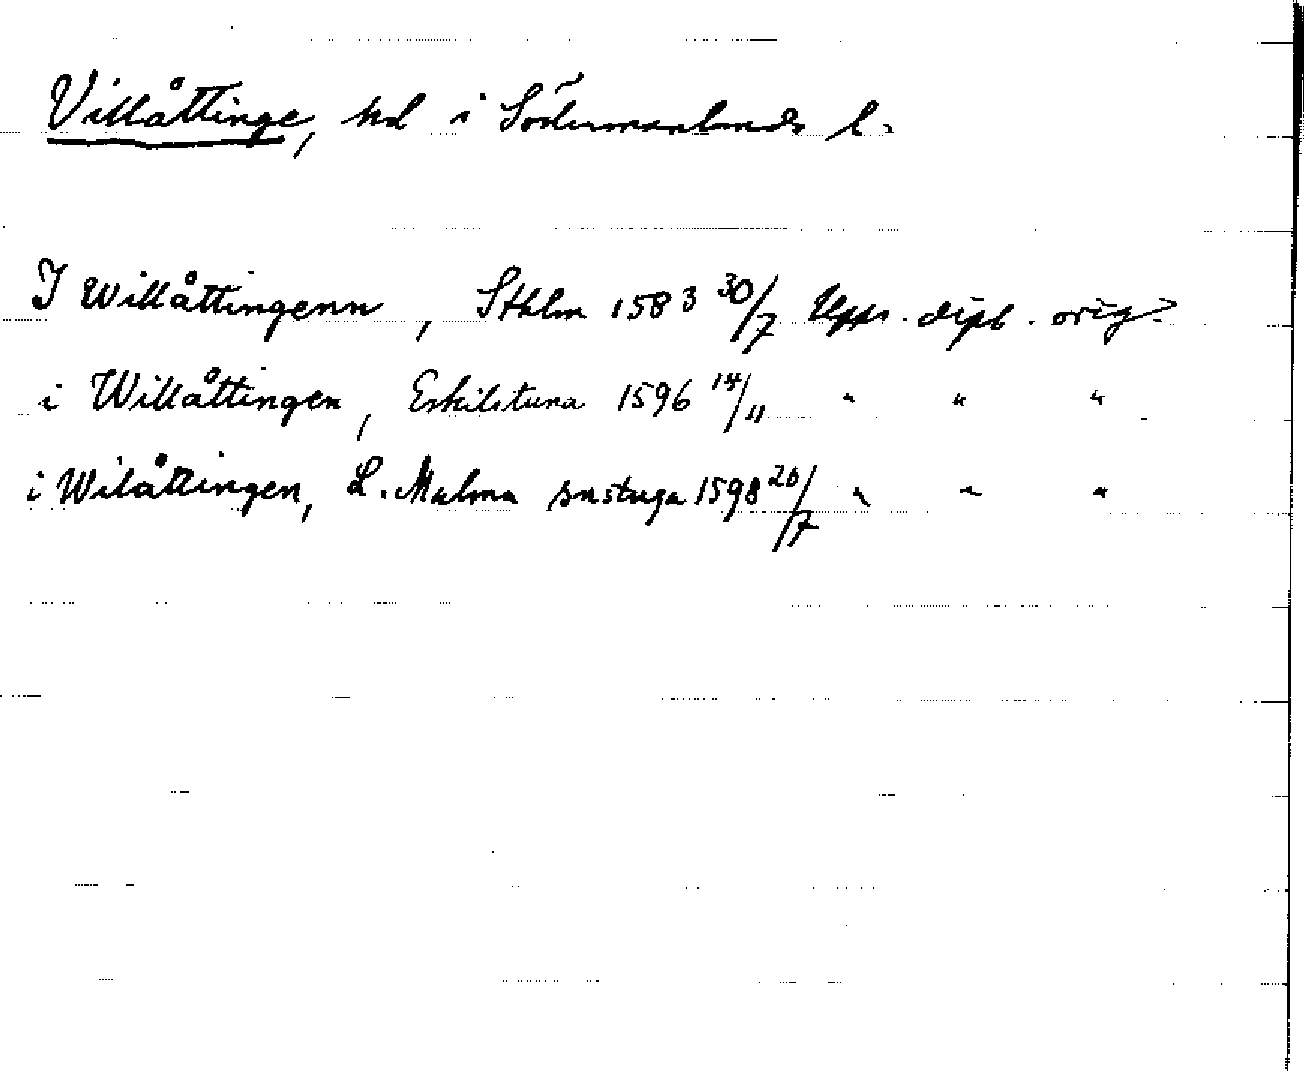 Villåttinge, hd i Södermanlands l.
I Willåttingenn, Sthlm 1583 30/7 Upps. dipl. orig.
i Willåttingen, Eskilstuna 1596 14/11 " " "
i Wilåttingen, L. Malma snstuga 1598 26/7 " " "